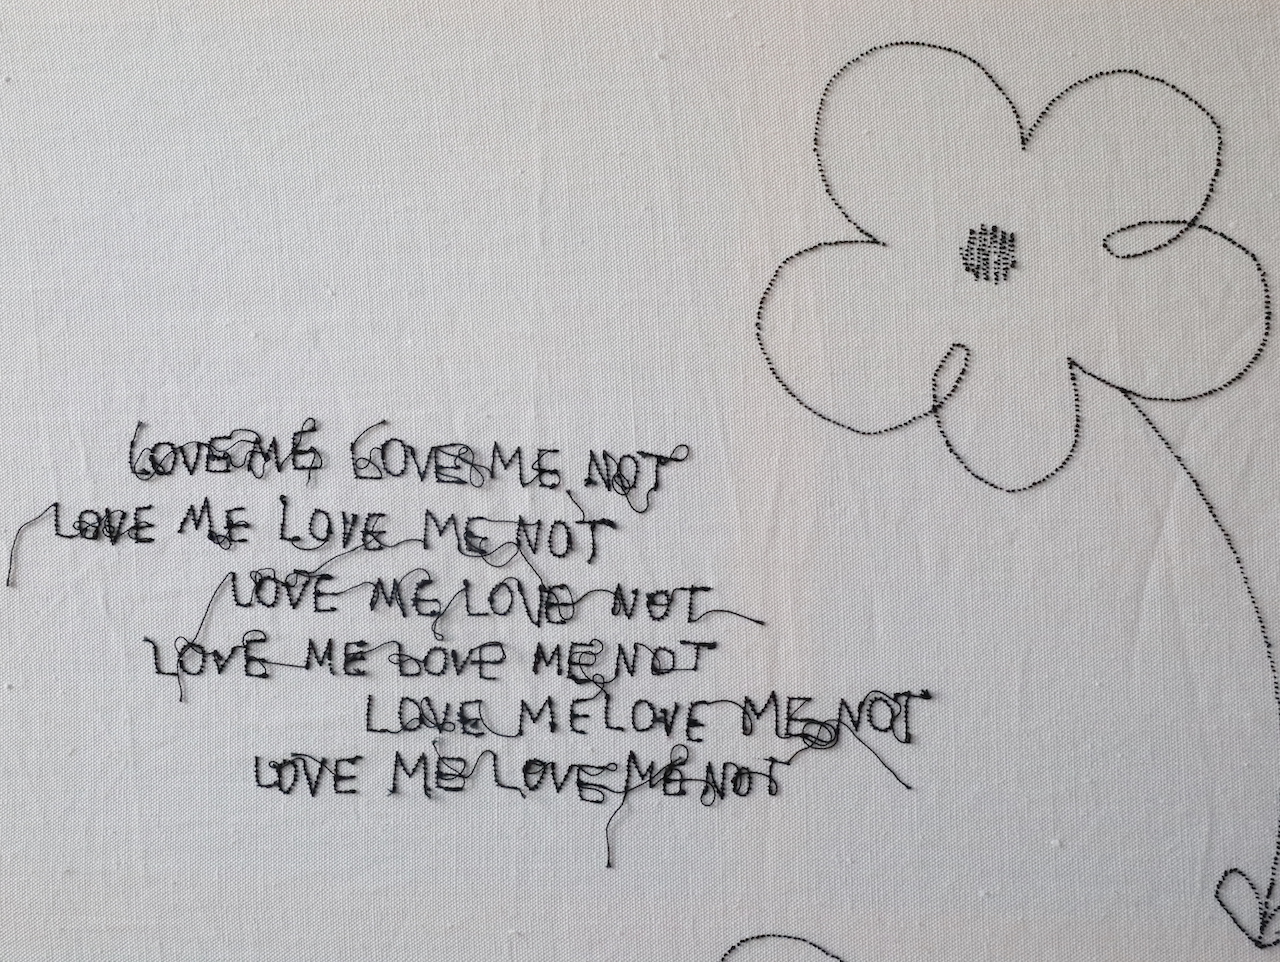 LOVE ME LOVE ME NOT
LOVE ME LOVE ME NOT
LOVE ME LOVE NOT
LOVE ME LOVE ME NOT
LOVE ME LOVE ME NOT
LOVE ME LOVE ME NOT